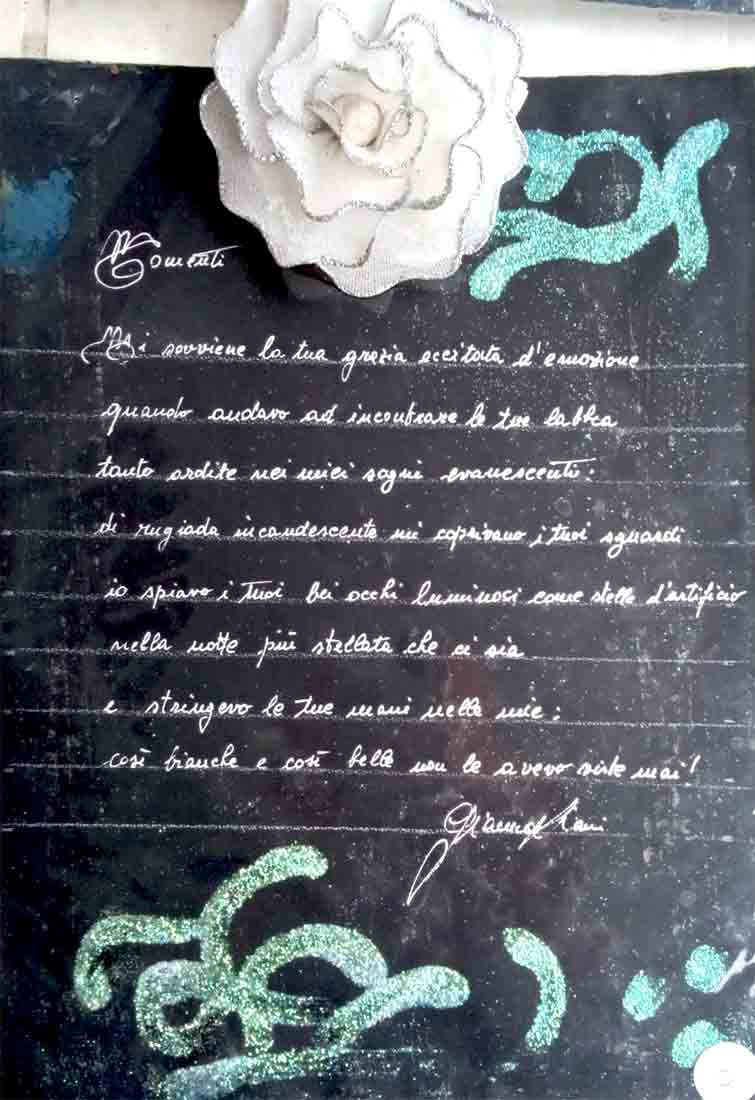 Momenti
Mi sovviene la tua grazia eccitata d'emozione
quando andavo ad incontrare le tue labbra
tanto ardite nei miei sogni evanescenti:
di rugiada incandescente mi coprivano i tuoi sguardi
io spiavo i tuoi bei occhi luminosi come stelle d'artificio
nella notte più stellata che ci sia
e stringevo le tue mani nelle mie:
così bianche e così belle non le avevo viste mai!